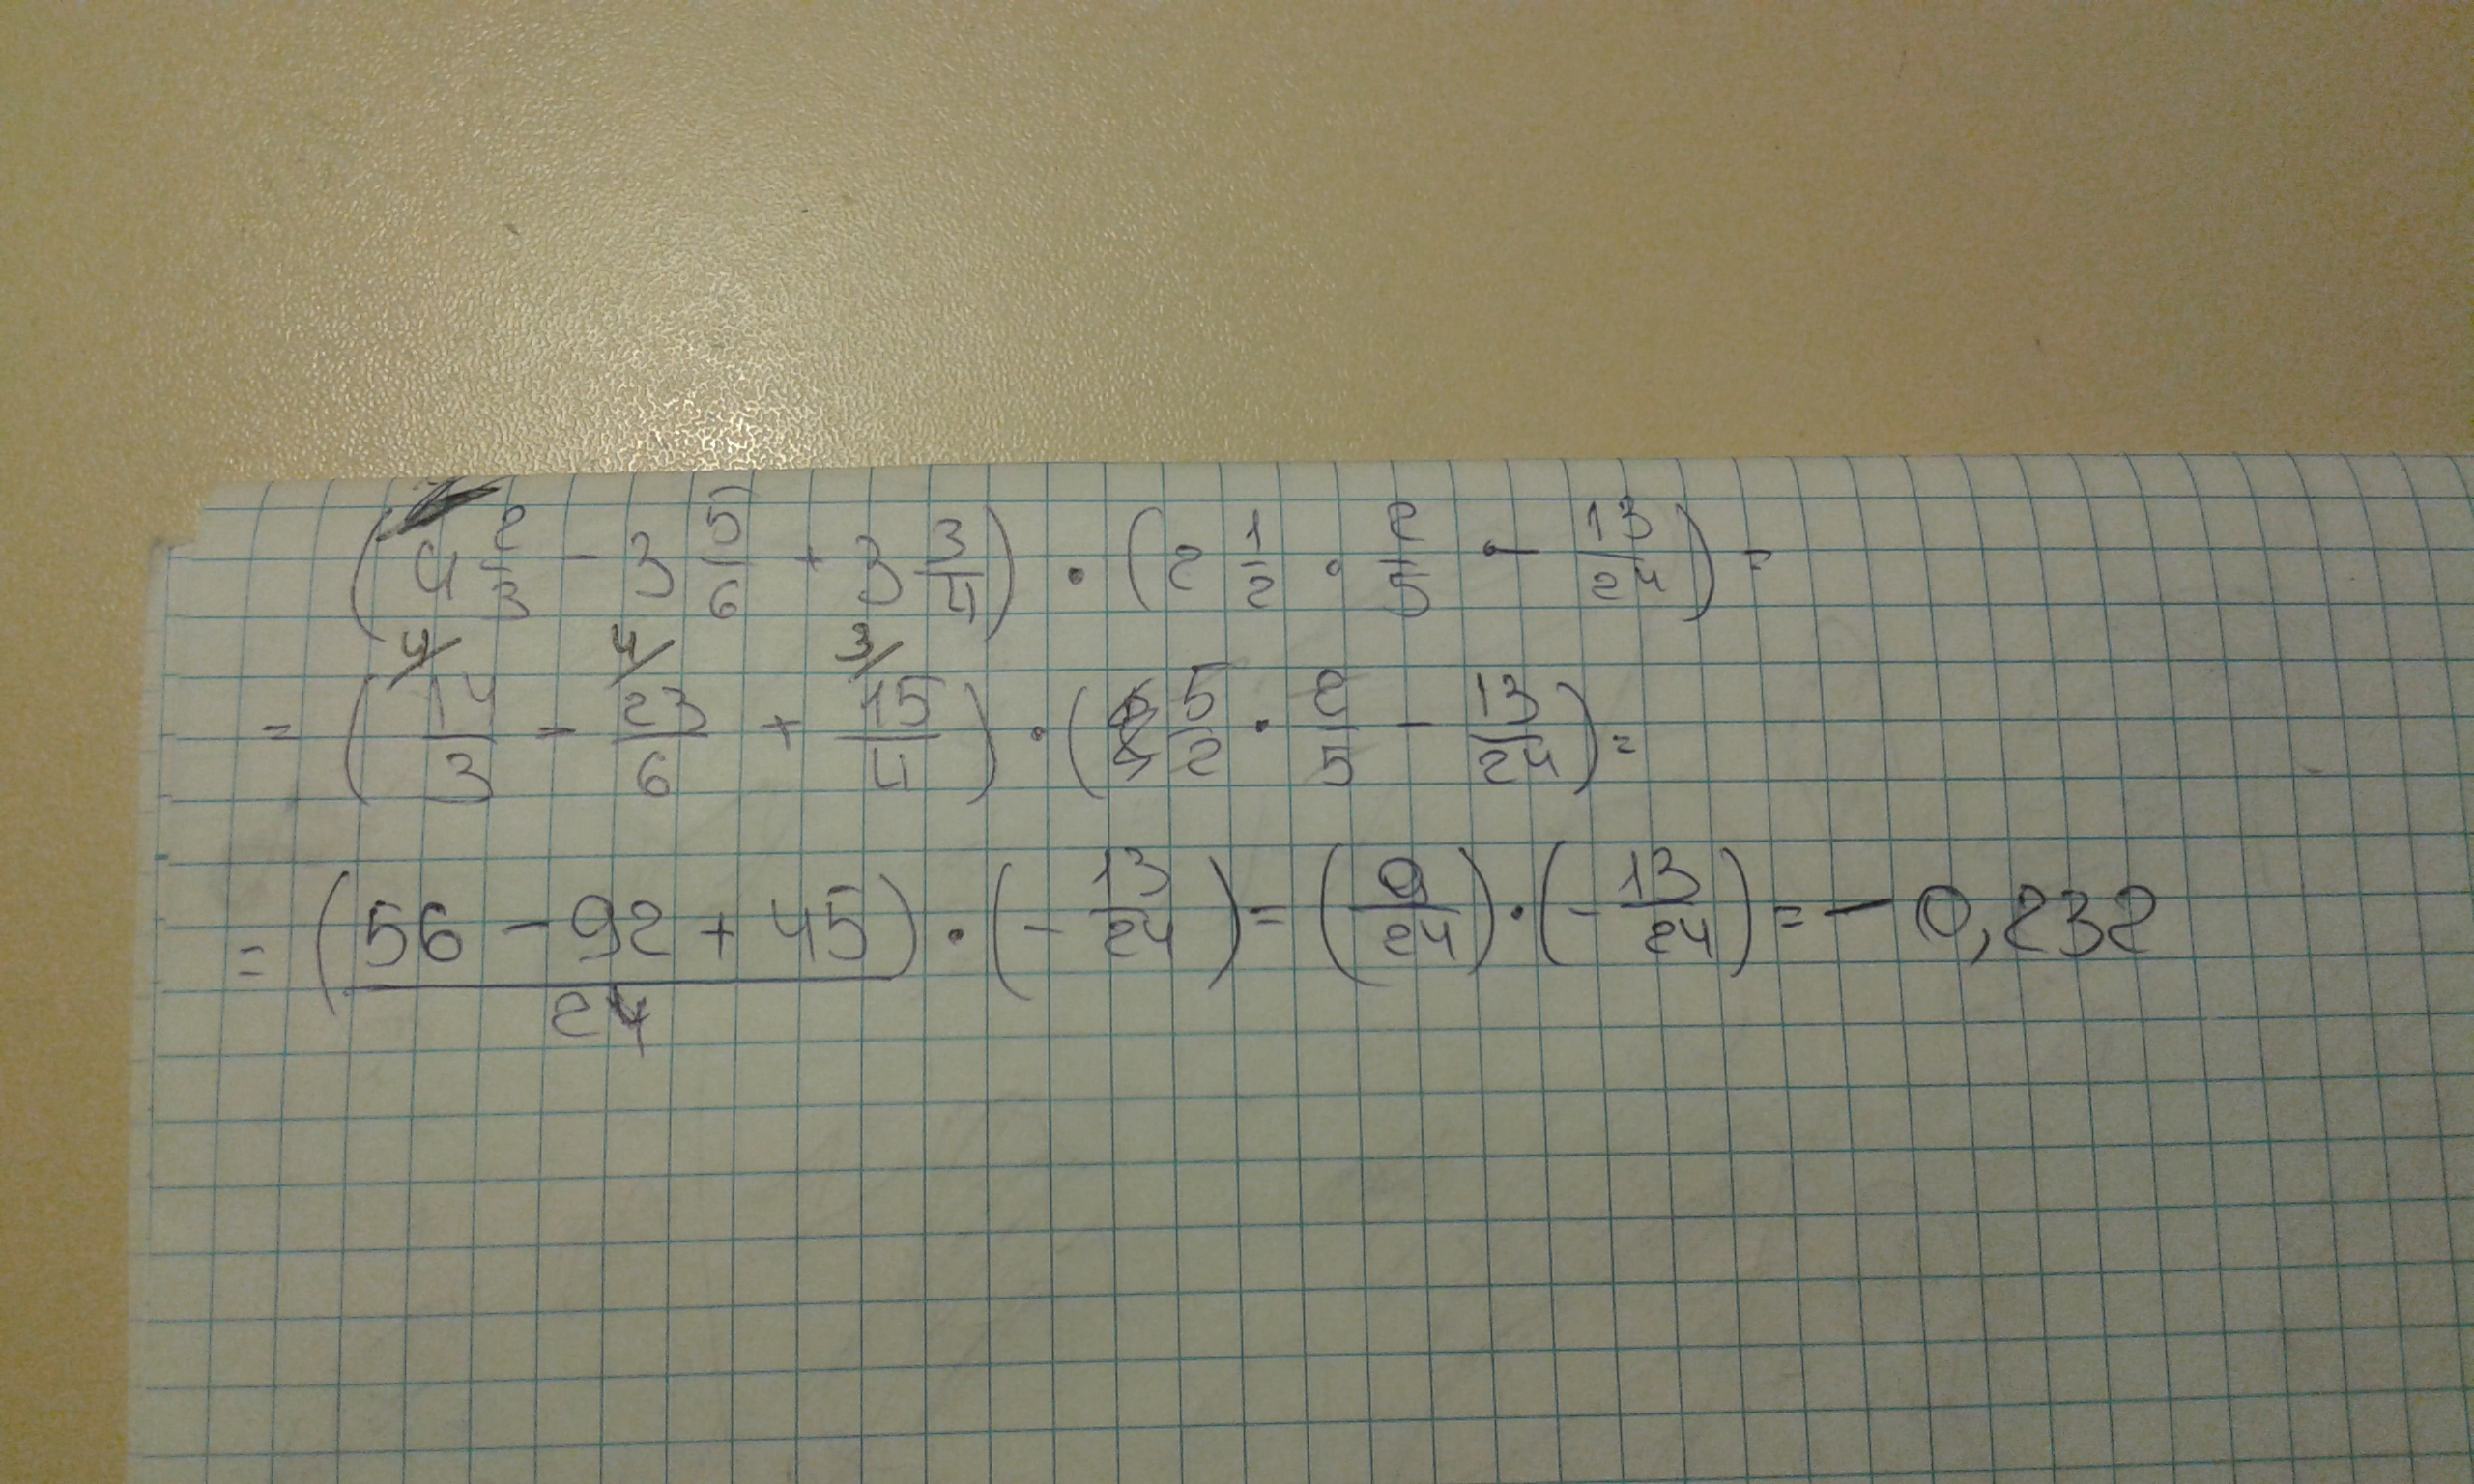 (4 2/3 - 3 5/6 + 3 3/4) · (2 1/2 · 2/5 - 13/24) =
4/ 4/ 3/
= (14/3 - 23/6 + 15/4) · (5/2 · 2/5 - 13/24) =
= (56 - 92 + 45)/24 · (- 13/24) = (9/24) · (- 13/24) = - 0,232